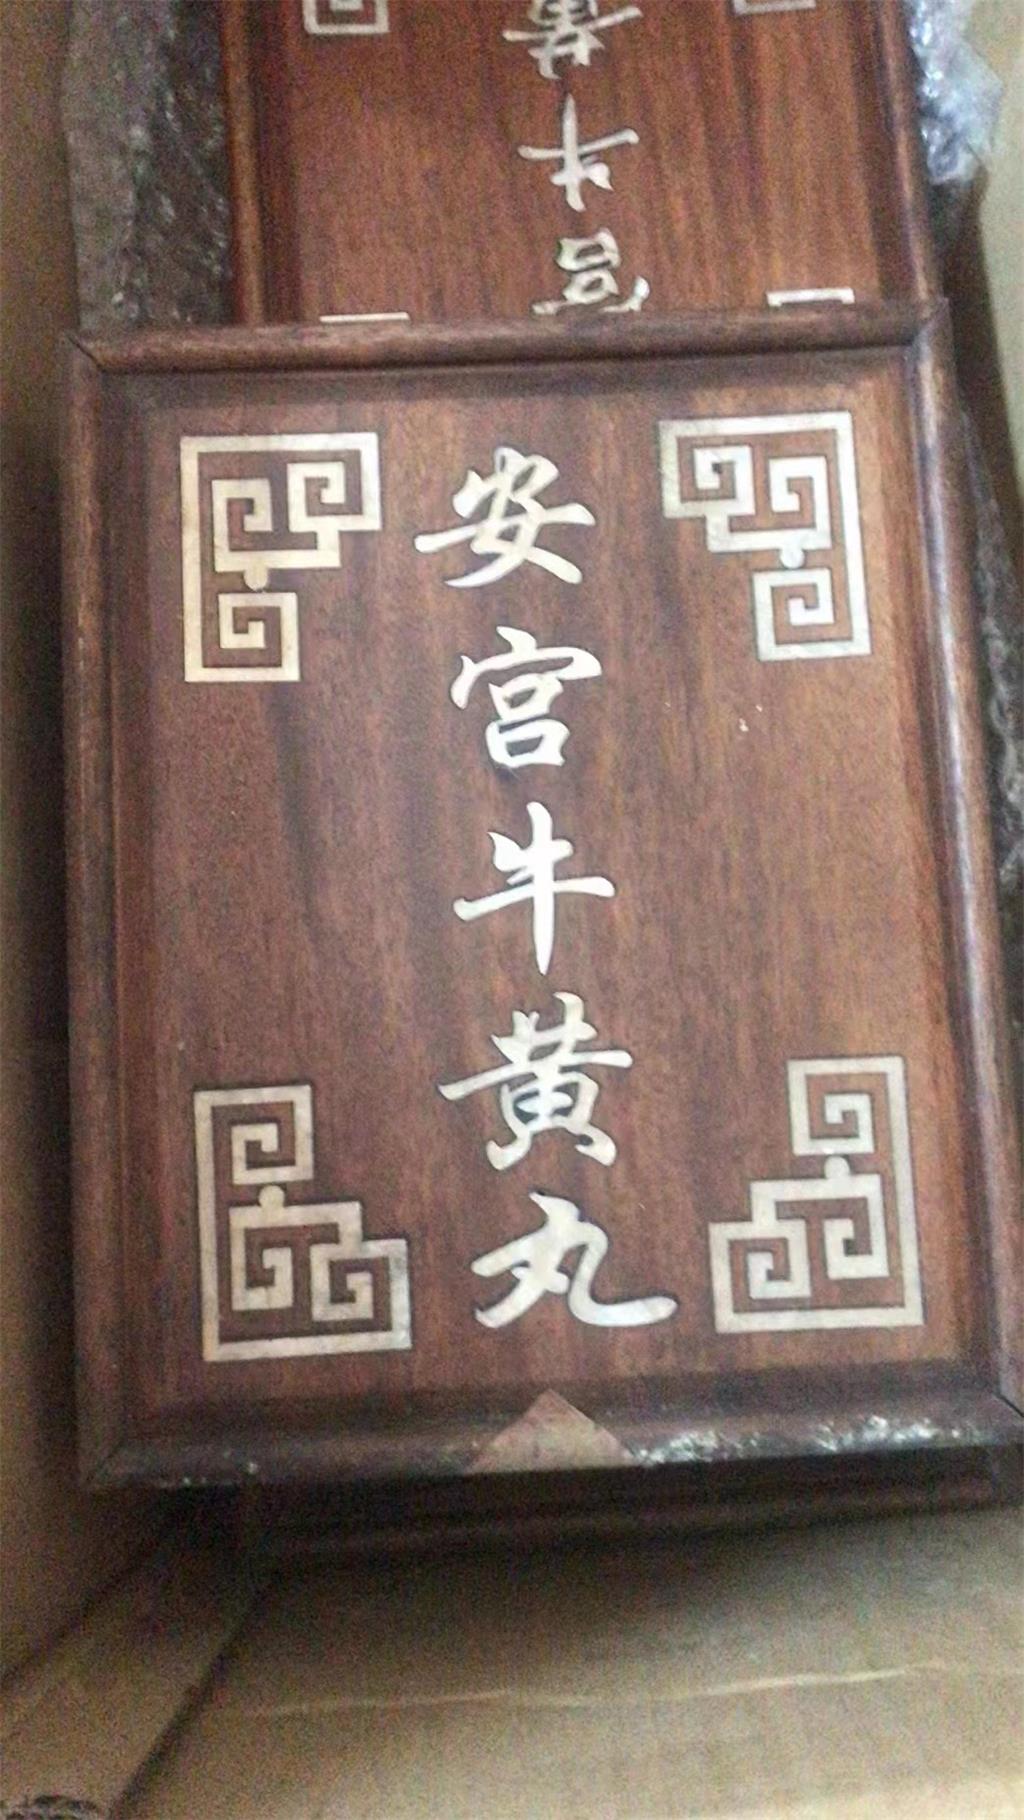 安宫牛黄丸
宫牛黄